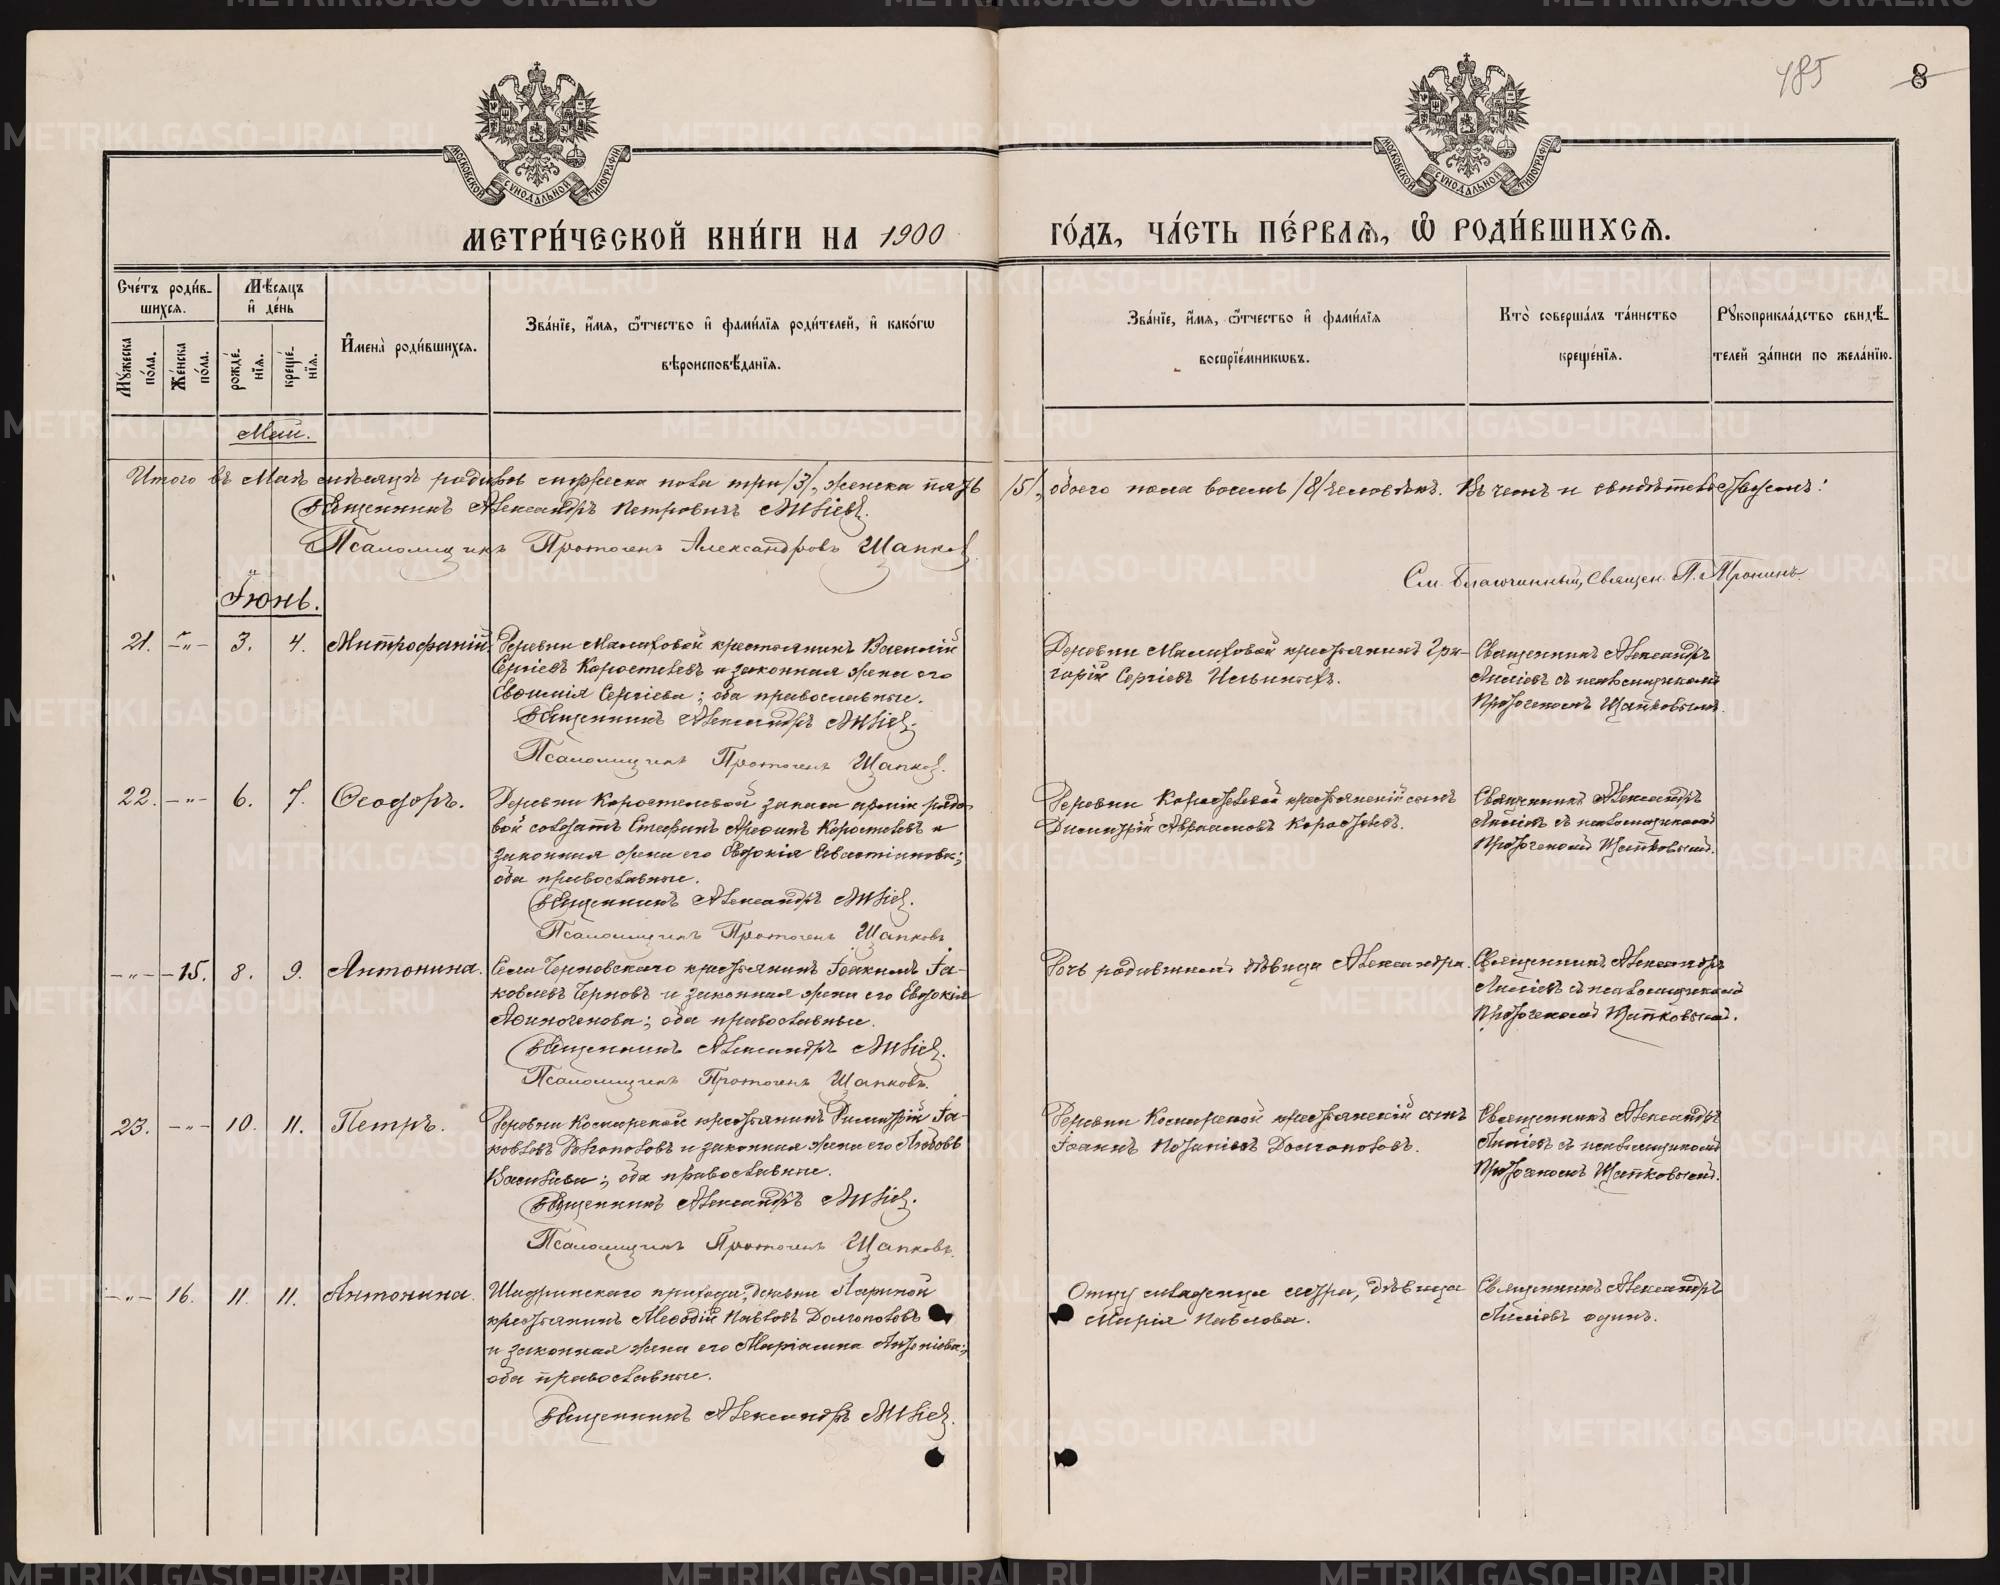 485 8
МОСКОВСКОЙ СѴНОДАЛЬНОЙ ТИПОГРАФІИ
МОСКОВСКОЙ СѴНОДАЛЬНОЙ ТИПОГРАФІИ
МЕТРИ́ЧЕСКОЙ КНИ́ГИ НА 1900 ГО́ДЪ, ЧА́СТЬ ПЕ́РВАѦ, Ѿ РОДИ́ВШИХСѦ.
Сче́тъ роди́в-
шихсѧ.
Мѣ́сѧцъ
и҆ де́нь
Мꙋ́жеска по́ла.
Же́нска по́ла.
рожде́-нїѧ.
креще́-нїѧ.
И҆мена̀ роди́вшихсѧ.
Зва́нїе, и҆́мѧ, ѻ҆́тчество и҆ фами́лїѧ роди́телей, и҆ како́гѡ
вѣроисповѣ́данїѧ.
Зва́нїе, и҆́мѧ, ѻ҆́тчество и҆ фами́лїѧ
воспрїе́мникѡвъ.
Кто̀ соверша́лъ та́инство
креще́нїѧ.
Рꙋкоприкла́дство свидѣ́-
телей за́писи по жела́нїю.
Май.
Итого въ Маѣ мѣсяцѣ родилось мужеска пола три /3/, женска пять /5/, обоего пола восемь /8/ человѣкъ. Въ чемъ и свидѣтельствуемъ:
Священникъ Александръ Петровичъ Анисіевъ.
Псаломщикъ Протогенъ Александровъ Щапковъ
См. Благочинный, Священ. П. Тронинъ.
Іюнь.
21. -"- 3. 4. Митрофаній.
Деревни Малиховой крестьянинъ Василій
Сергіевъ Коростелевъ и законная жена его
Евфимія Сергіева; оба православные.
Священникъ Александръ Анисіевъ.
Псаломщикъ Протогенъ Щапковъ.
Деревни Малиховой крестьянинъ Гри-
горій Сергіевъ Ильиныхъ.
Священникъ Александръ
Анисіевъ съ псаломщикомъ
Протогеномъ Щапковымъ.
22. -"- 6. 7. Ѳеодоръ.
Деревни Коростелевой запаса арміи рядо-
вой солдатъ Стефанъ Коростелевъ и
законная жена его Евдокія;
оба православные.
Священникъ Александръ Анисіевъ.
Псаломщикъ Протогенъ Щапковъ
Деревни Коростелевой крестьянскій сынъ
Димитрій Авраамовъ Коростелевъ.
Священникъ Александръ
Анисіевъ съ псаломщикомъ
Протогеномъ Щапковымъ.
-"- 15. 8. 9. Антонина.
Села Черновскаго крестьянинъ Іоакимъ Іа-
ковлевъ Черновъ и законная жена его Евдокія
Аѳиногенова; оба православные.
Священникъ Александръ Анисіевъ.
Псаломщикъ Протогенъ Щапковъ.
Дочь родившаго дѣвица Александра.
Священникъ Александръ
Анисіевъ съ псаломщикомъ
Протогеномъ Щапковымъ.
23. -"- 10. 11. Петръ.
Деревни крестьянинъ Димитрій Іа-
ковлевъ Долгополовъ и законная жена его Любовь
Васильева; оба православные.
Священникъ Александръ Анисіевъ.
Псаломщикъ Протогенъ Щапковъ.
Деревни крестьянскій сынъ
Іоаннъ Долгополовъ.
Священникъ Александръ
Анисіевъ съ псаломщикомъ
Протогеномъ Щапковымъ.
-"- 16. 11. 11. Антонина.
Шадринскаго прихода, деревни Лариной
крестьянинъ Меѳодій Павловъ Долгополовъ
и законная жена его Маріамна Антоніева;
оба православные.
Священникъ Александръ Анисіевъ.
Отцу младенца сестра, дѣвица
Марія Павлова.
Священникъ Александръ
Анисіевъ одинъ.
METRIKI.GASO-URAL.RU